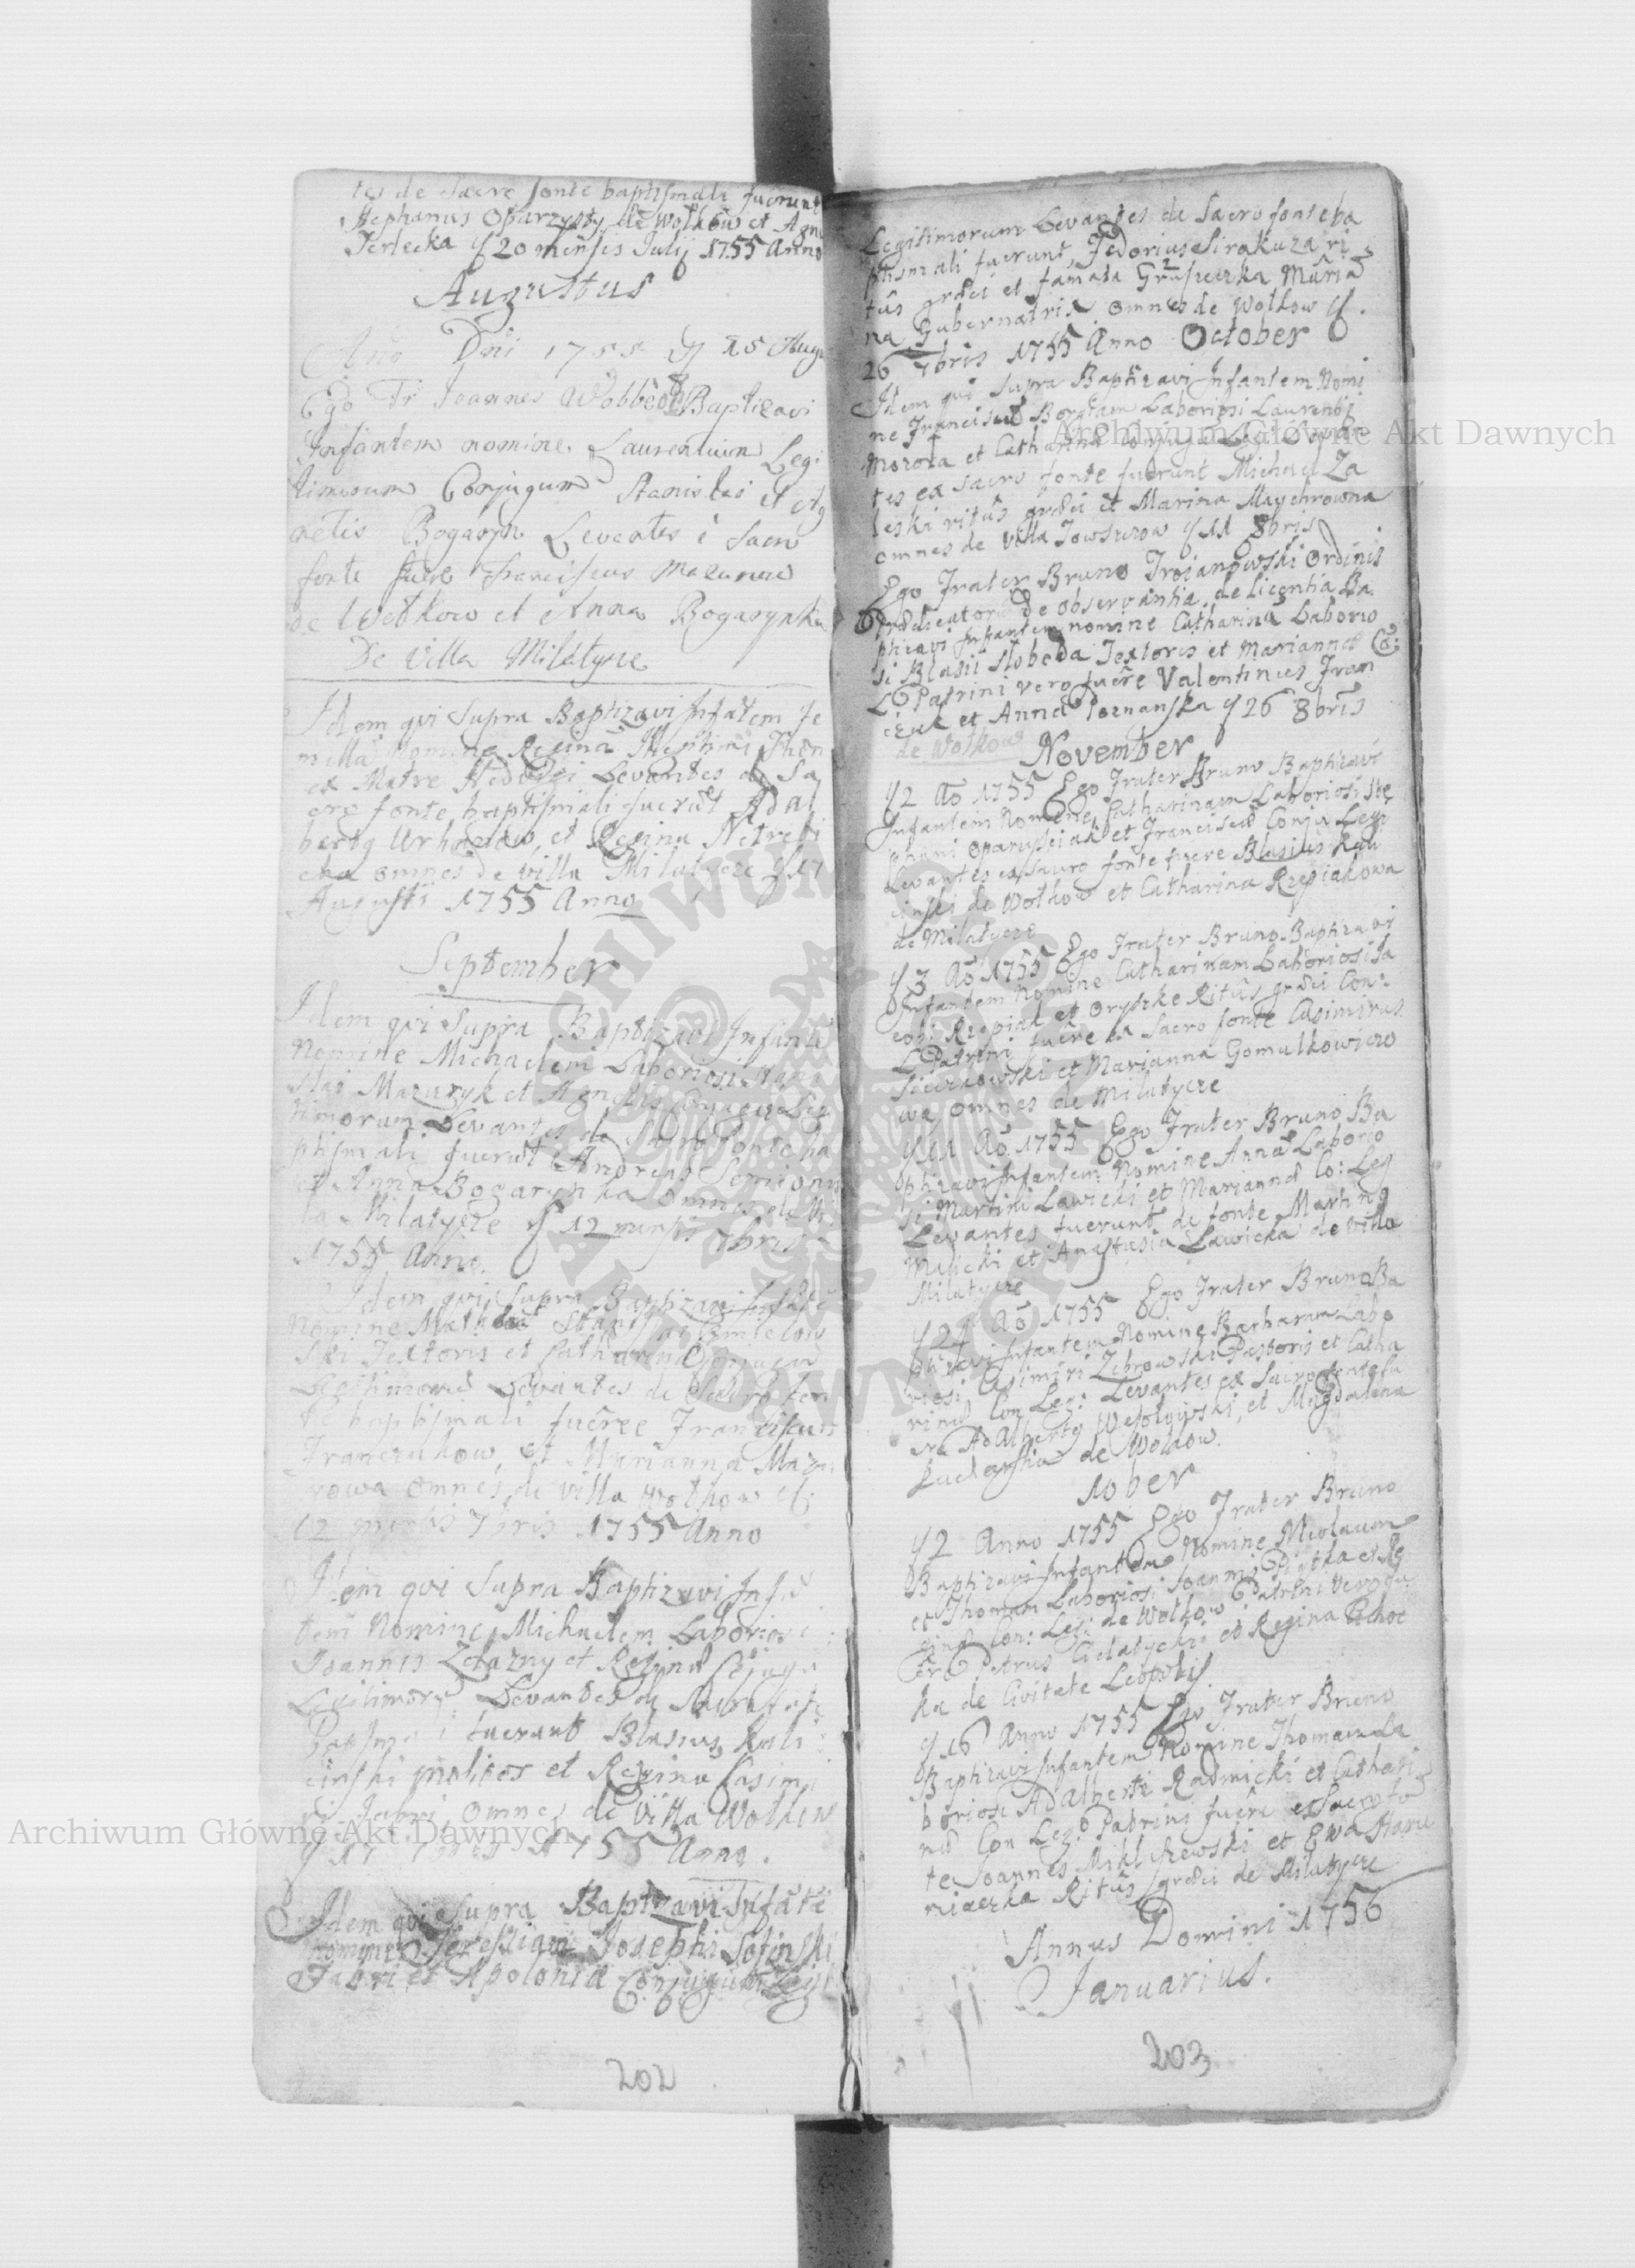 tes de Sacro fonte baptismali fuerunt
Stephanus Oparzysty de Wołkow et Agn
Terlecka y 20 mensis Julij 1755 Anno
Augustus
Año Dni 1755 y 15 Augu
Ego Fr Joannes Baptizavi
Infantem nomine Laurentium Legi
timorum Conjugum Stanislai et Ag
netis Bogaryn Levantes è Sacro
fonte fuere Franciscus
de Wołkow et Anna Bogarynka
De Villa Milatycze
Idem qui Supra Baptizavi Infatem fe
mella Nomine Regina
ex Matre Levantes de Sa
cro fonte baptismali fuerut Adal
bertg et Regina
omnes de villa Milatycze y 17
Augusti 1755 Anno
September
Idem qui Supra Baptizavi Infante
Nomine Michaelem Laboriosi Stani
slai Mazuryk et Agnetis Conjugu Legi
timorum Levantes de Sacro fonte ba
ptismali fuerut Andreas
et Anna Bogarynka omnes de Vi
la Milatycze y 12 mensis 7bris
1755 Anno.
Idem qui Supra Baptizavi Infate
Nomine
ski Textoris et Catharina Conjugu
Legitimoru Levantes de Sacro fon
te baptismali fuêre Franciscus
Franczukow, et Marianna Mazu
rowa omnes de villa Wołkow y
12 mensis 7bris 1755 Anno
Idem qui Supra Baptizavi Infa
tem Nomine Michaelem Laboriosi
Joannis Zelazny et Regina Cojugu
Legitimoru Levantes de Sacro fote
fuerunt Blasius Kali
cinski miles et Regina Casimi
ri Fabri omnes de villa Wołkow
y 17 1755 Anno.
Idem qui Supra Baptizavi Infate
nomine Teressiam Josephi Sotinski
Fabri et Apolonia Conjugum Legi
202
Legitimorum Levantes de Sacro fonte ba
ptismali fuerunt Fedorius Sirokuza ri
tûs græci et famata Maria
na Gubernatris omnes de Wołkow y
26 7bris 1755 Anno October
Idem qui Supra Baptizavi Infantem Nomi
ne Borgiam Laboriosi Laurentij
Moroza et Catharina
tes ex sacro fonte fuerunt Michael Za
leski ritûs græci et Marina Maychrowna
omnes de Villa y 11 8bris
Ego Frater Bruno Trojanowski Ordinis
Prædicatoru de observantia de Licentia Ba
ptizavi Infantem nomine Catharina Laborio
si Blasii Słoboda Textoris et Marianna Co:
L Patrini vero fuêre Valentinus Fran
czuk et Anna Poznanska y 26 8bris
de Wołkow
November
y 2 Aō 1755 Ego Frater Bruno Baptizavi
Infantem Nomine Catharinam Laboriosi Ste
phani et Francisca Conju Legi
Levantes ex Sacro fonte fuere Blasius Kali
cinski de Wołkow et Catharina Rzepiakowa
de Milatycze
y 3 Aō 1755 Ego Frater Bruno Baptizavi
Infantem Nomine Catharinam Laboriosi Ja
cobi Rzepiak et Oryszke Ritûs græci Con:
L Patrini fuêre ex Sacro fonte Casimirus
Sieczkowski et Marianna Gomulkowiczo
wa omnes de Milatycze
y 11 Aō 1755 Ego Frater Bruno Ba
ptizavi Infantem Nomine Anna Laborio
si Martini Lawicki et Marianna Co: Leg
Levantes fuerunt de fonte Marting
Milicki et Anastasia Lawicka de Villa
Milatycze
y 24 Aō 1755 Ego Frater Bruno Ba
ptizavi Infantem Nomine Barbaram Labo
riosi Casimiri Zebrowski Pastoris et Catha
rina Con Leg: Levantes ex Sacro fonte fu
ere Adalbertg Wesołowski, et Magdalena
de Wołkow.
10ber
y 2 Anno 1755 Ego Frater Bruno
Baptizavi Infantem Nomine Nicolaum
et Thomam Laboriosi Joannis et Re
gina Con: Legi: de Wołkow Patrini Vero fu
ere Petrus et Regina
ka de Civitate Leopolis.
y 16 Anno 1755 Ego Frater Bruno
Baptizavi Infantem Nomine Thomam La
boriosi Adalberti Radnicki et Cathari
na Con Leg: Patrini fuêre ex Sacro fo
te Joannes et Ewa
Ritûs græci de Milatycze
Annus Domini 1756
Januarius.
203
Archiwum Główne Akt Dawnych
Archiwum Główne Akt Dawnych